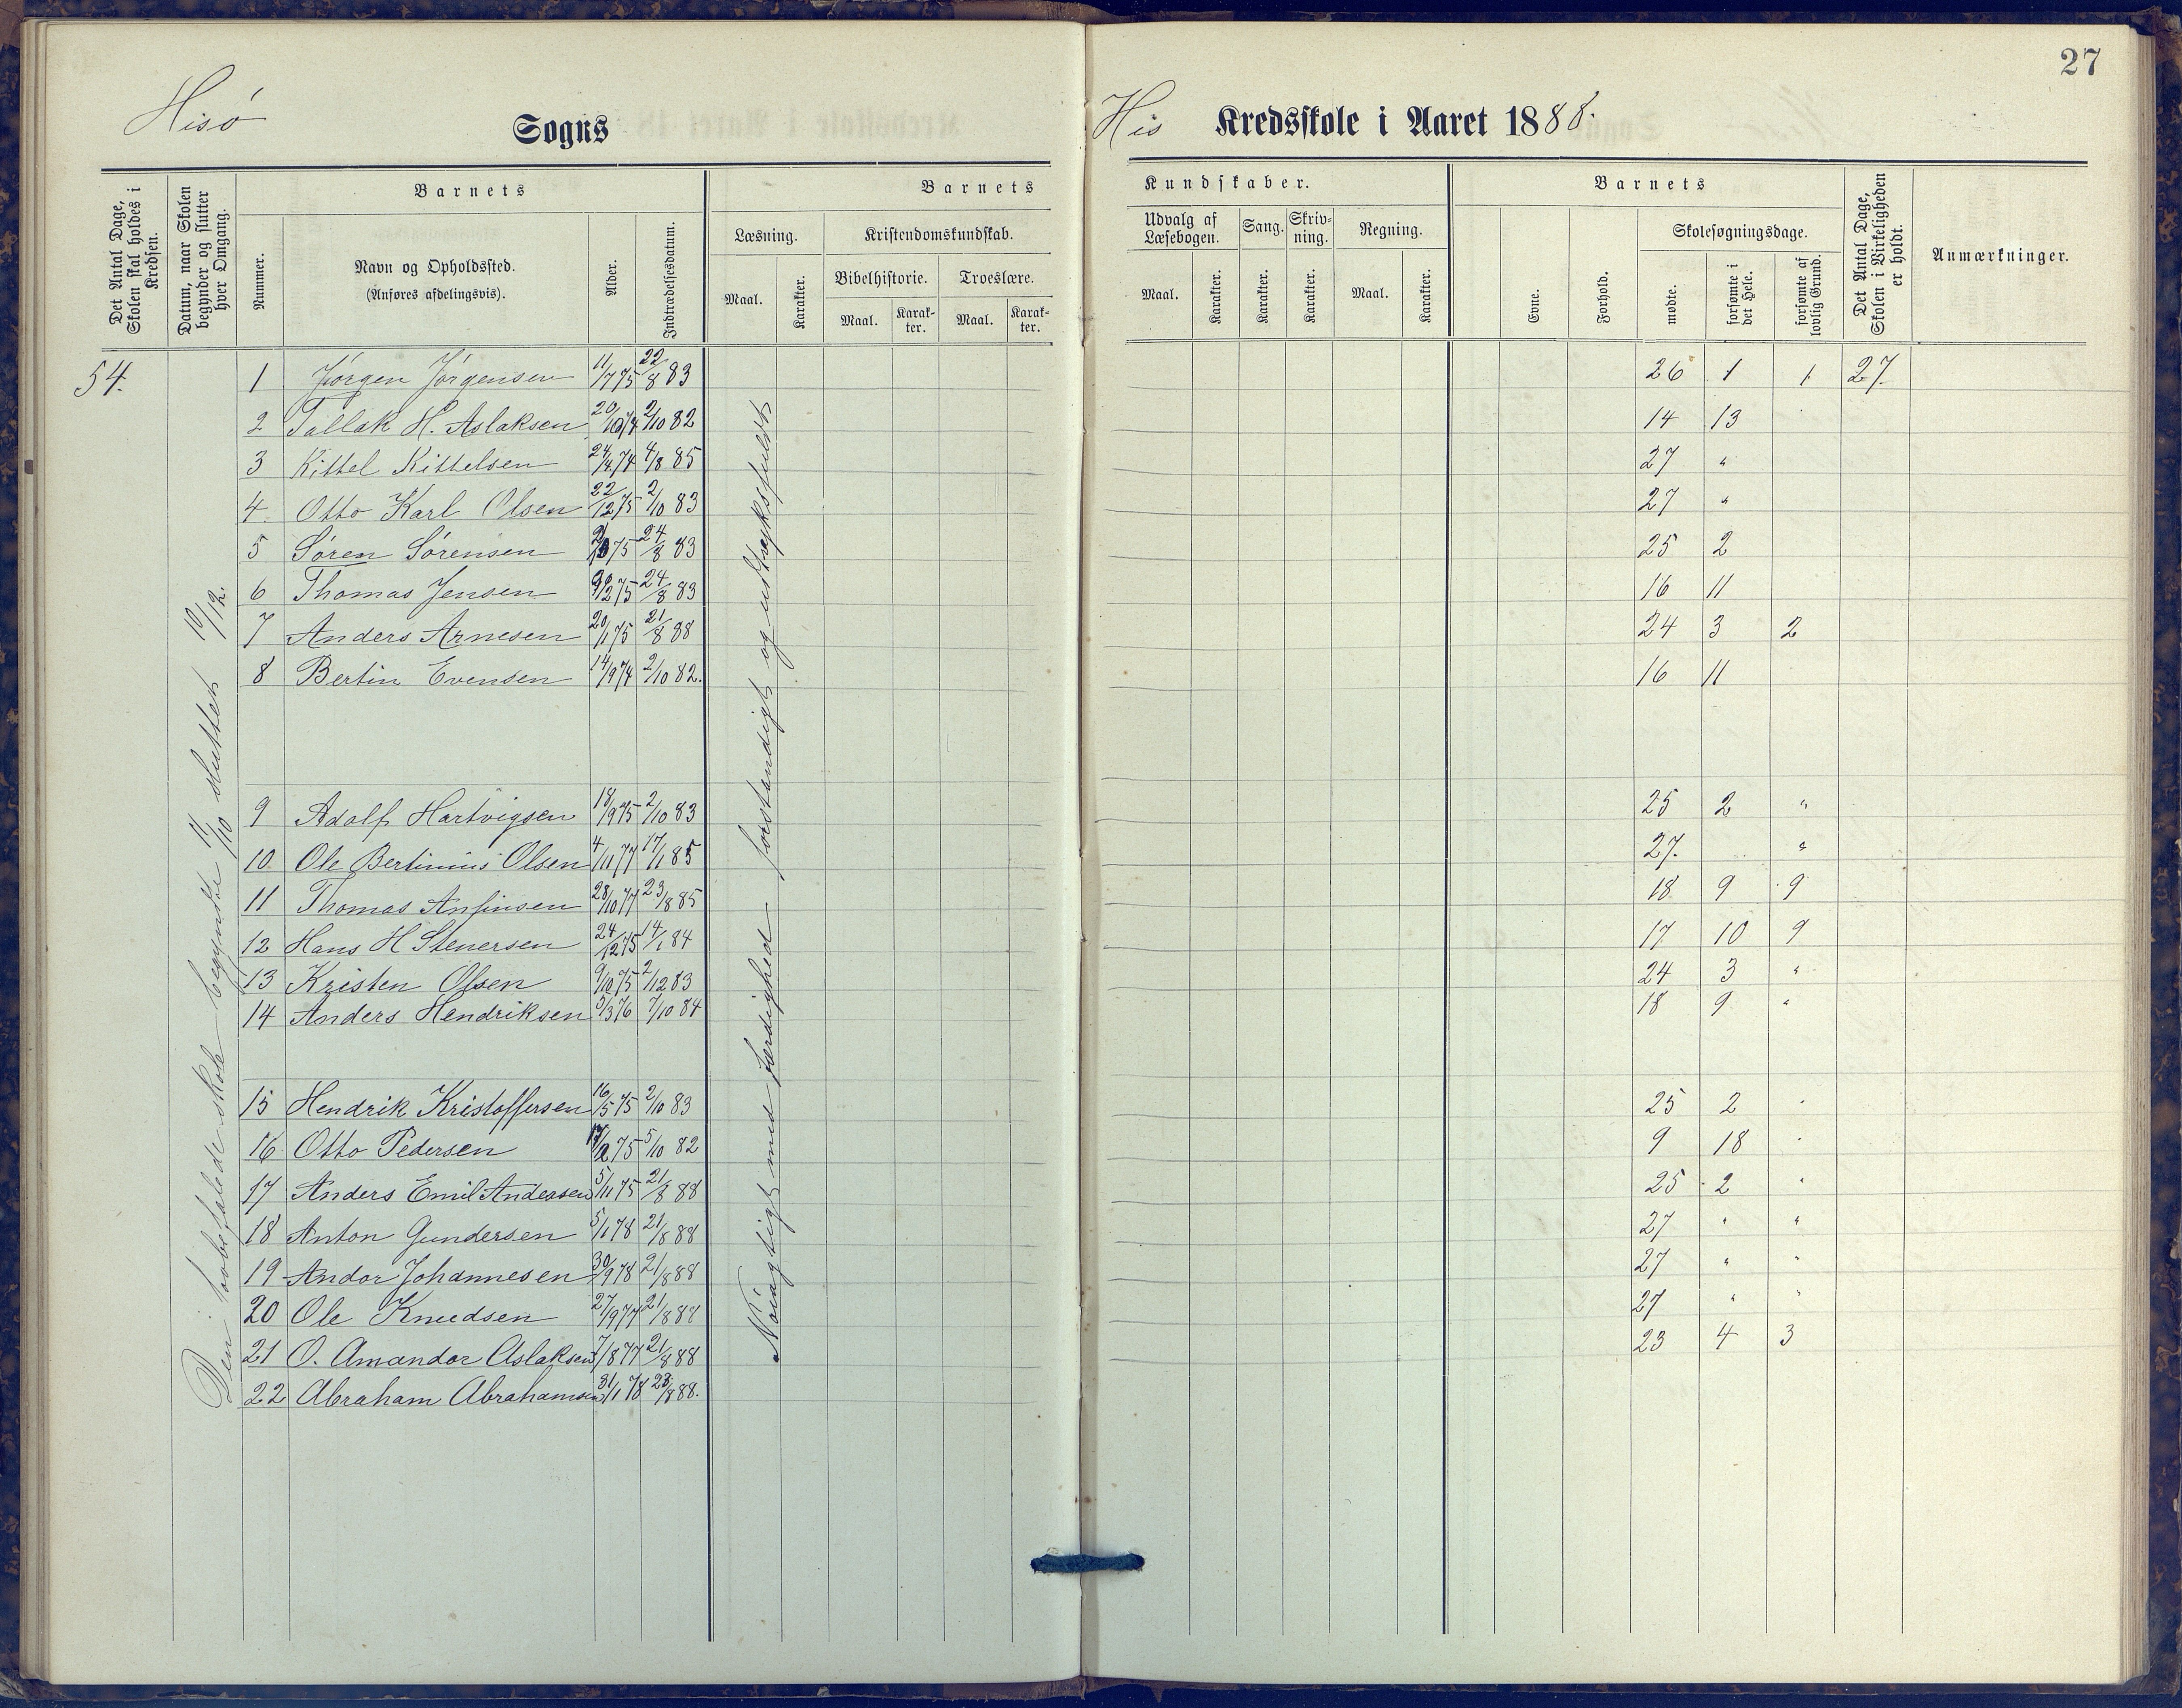 27
Hisø Sogns His Kredsskole i Aaret 1888.
Det Antal Dage, Skolen skal holdes i Kredsen.
Datum, naar Skolen begynder og slutter hver Omgang.
Barnets
Nummer.
Navn og Opholdssted.
(Anføres afdelingsvis).
Alder.
Indtrædelsesdatum.
Barnets Kundskaber.
Læsning.
Maal.
Karakter.
Kristendomskundskab.
Bibelhistorie.
Maal.
Karakter.
Troeslære.
Maal.
Karakter.
Udvalg af Læsebogen.
Maal.
Karakter.
Sang.
Karakter.
Skrivning.
Karakter.
Regning.
Maal.
Karakter.
Barnets
Evne.
Forhold.
Skolesøgningsdage.
mødte.
forsømte i det Hele.
forsømte af lovlig Grund.
Det Antal Dage, Skolen i Virkeligheden er holdt.
Anmærkninger.
54.
begyndte 11/10 sluttet 19/12.
Nøiagtigt med færdighed forstandigt og udtryksfuldt
1 Jørgen Jørgensen 11/7 75 22/8 83 26 1 1 27
2 Tallak H. Aslaksen 20/10 74 2/10 82 14 13
3 Kittel Kittelsen 24/4 74 4/8 85 27 "
4 Otto Karl Olsen 22/12 75 2/10 83 27 "
5 Søren Sørensen 75 24/8 83 25 2
6 Thomas Jensen 75 24/8 83 16 11
7 Anders Arnesen 20/1 75 21/8 88 24 3 2
8 Bertin Evensen 14/9 74 2/10 82. 16 11
9 Adolf Hartvigsen 18/9 75 2/10 83 25 2 "
10 Ole Bertinius Olsen 4/11 77 17/1 85 27. "
11 Thomas Anfinsen 28/10 77 23/8 85 18 9 9
12 Hans H Stenersen 24/12 75 14/1 84 17 10 9
13 Kristen Olsen 9/10 75 2/12 83 24 3 "
14 Anders Hendriksen 5/3 76 7/10 84 18 9 "
15 Hendrik Kristoffersen 16/5 75 2/10 83 25 2 "
16 Otto Pedersen 75 5/10 82 9 18 "
17 Anders Emil Andersen 5/11 75 21/8 88 25 2 "
18 Anton Gundersen 5/1 78 21/8 88 27 " "
19 Andor Johannesen 30/9 78 21/8 88 27 " "
20 Ole Knudsen 27/9 77 21/8 88 27 " "
21 O. Amandor Aslaksen 7/8 77 21/8 88 23 4 3
22 Abraham Abrahamsen 31/1 78 23/8 88.